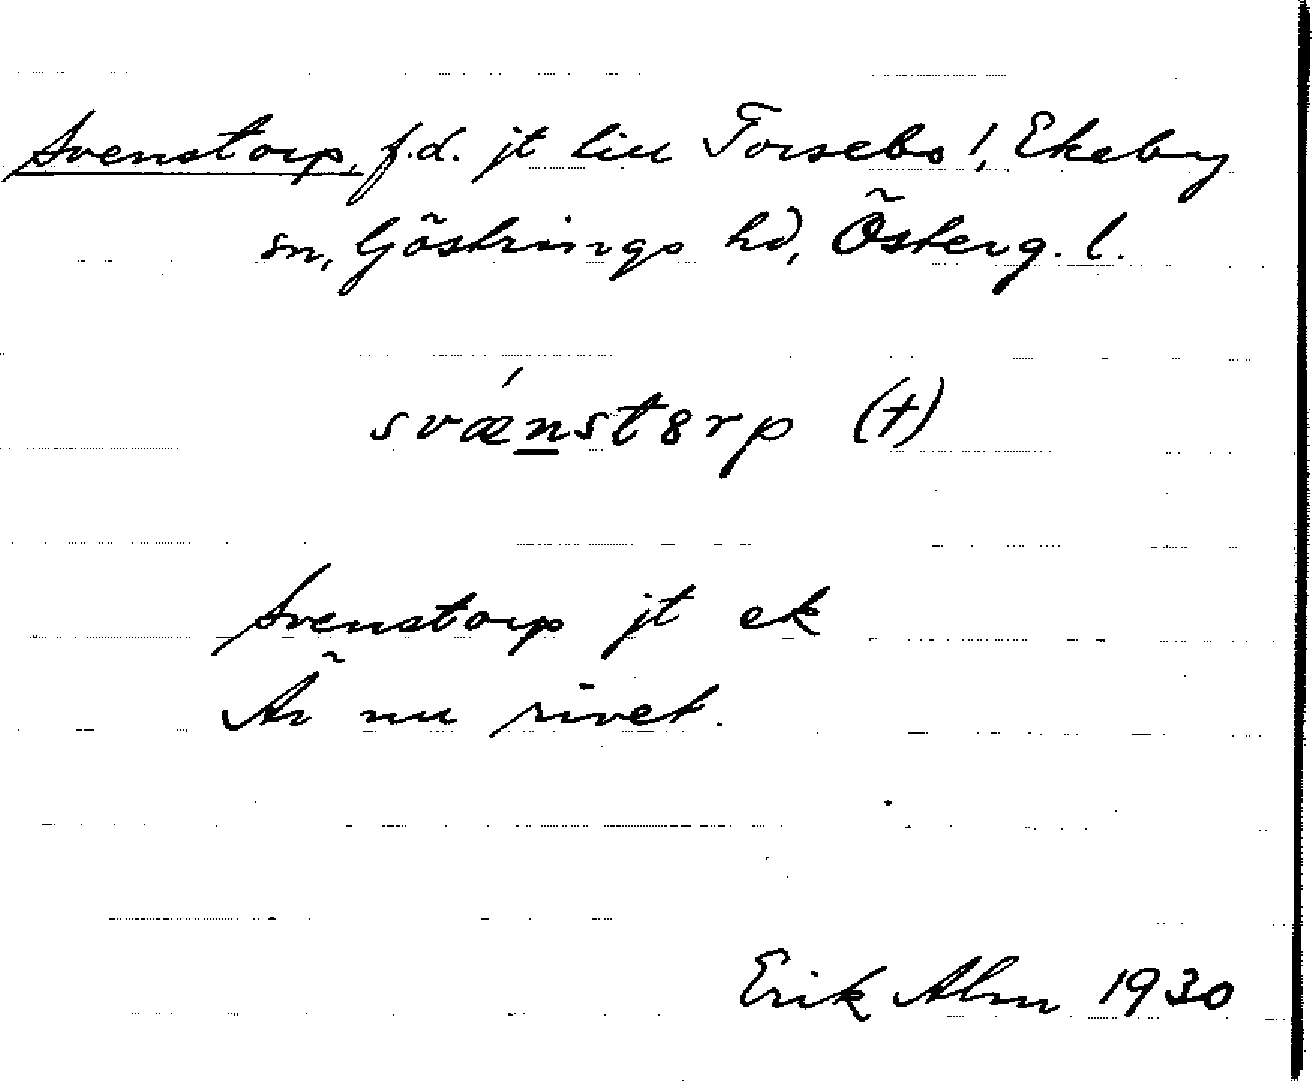 Svenstorp, f.d. jt liu Torsebo!, Ekeby
sn, Göstrings hd, Österg. l.
svǽnstȣrp (+)
Svenstorp jt ek
Är nu rivet.
Erik Alm 1930